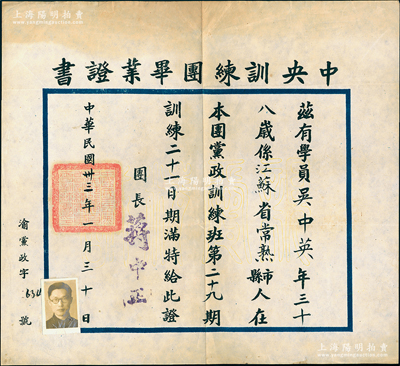 上海陽明拍賣
中央訓練團畢業證書
茲有學員吳中英年三十
八歲係江蘇省常熟市縣人在
本團黨政訓練班第二十九期
訓練二十一日期滿特給此證
團長 蔣中正
中華民國卅三年一月三十日
渝黨政字
號